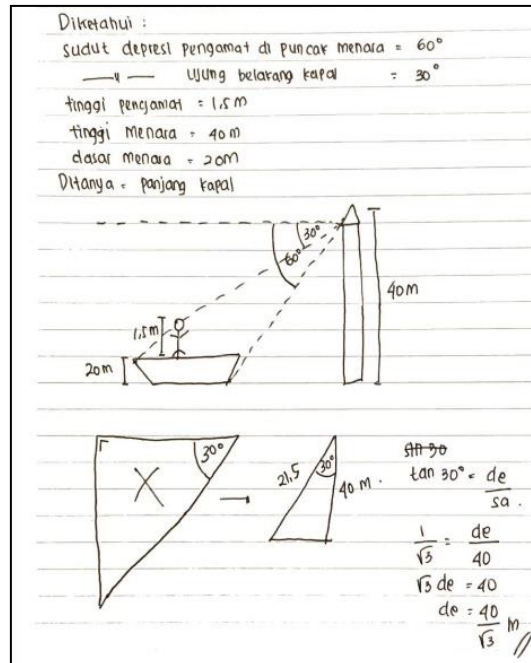 Diketahui :
sudut depresi pengamat di puncak menara = 60°
—〃— ujung belakang kapal = 30°
tinggi pengamat = 1,5 m
tinggi menara = 40 m
dasar menara = 20 m
Ditanya = panjang kapal
30°
60°
40 m
1,5 m
20 m
30°
X
21,5
30°
40 m.
sin 30
tan 30° = de/sa.
1/√3 = de/40
√3 de = 40
de = 40/√3 m //